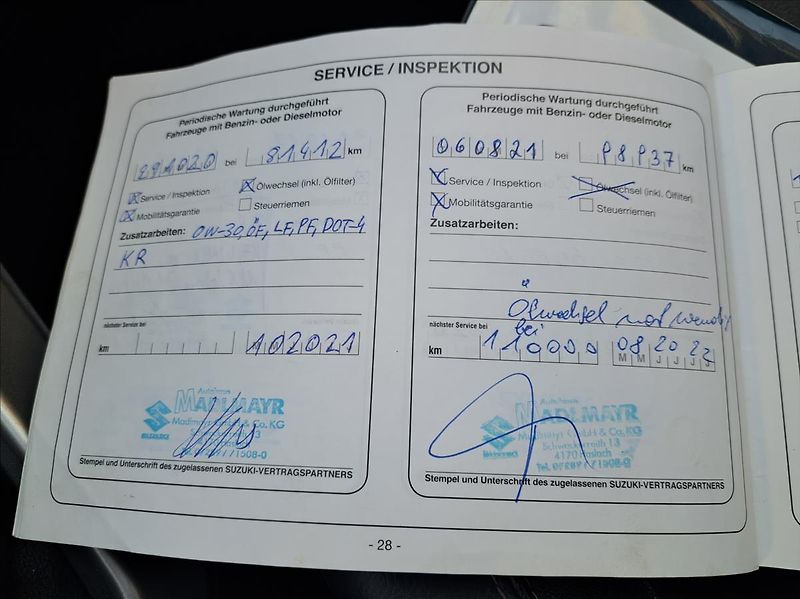 SERVICE / INSPEKTION
Periodische Wartung durchgeführt
Fahrzeuge mit Benzin- oder Dieselmotor
291020 bei 81412 km
Service / Inspektion Ölwechsel (inkl. Ölfilter)
Mobilitätsgarantie Steuerriemen
Zusatzarbeiten: 0W-30, ÖF, LF, PF, DOT-4
KR
nächster Service bei
km 102021
Autohaus
MADLMAYR
Madlmayr GmbH & Co. KG
SUZUKI
Stempel und Unterschrift des zugelassenen SUZUKI-VERTRAGSPARTNERS
Periodische Wartung durchgeführt
Fahrzeuge mit Benzin- oder Dieselmotor
060821 bei km
Service / Inspektion Ölwechsel (inkl. Ölfilter)
Mobilitätsgarantie Steuerriemen
Zusatzarbeiten:
Ölwechsel notwendig
nächster Service bei bei
km 110000 082022
M M J J J J
MADLMAYR
Madlmayr GmbH & Co. KG
4170 Haslach
Stempel und Unterschrift des zugelassenen SUZUKI-VERTRAGSPARTNERS
- 28 -